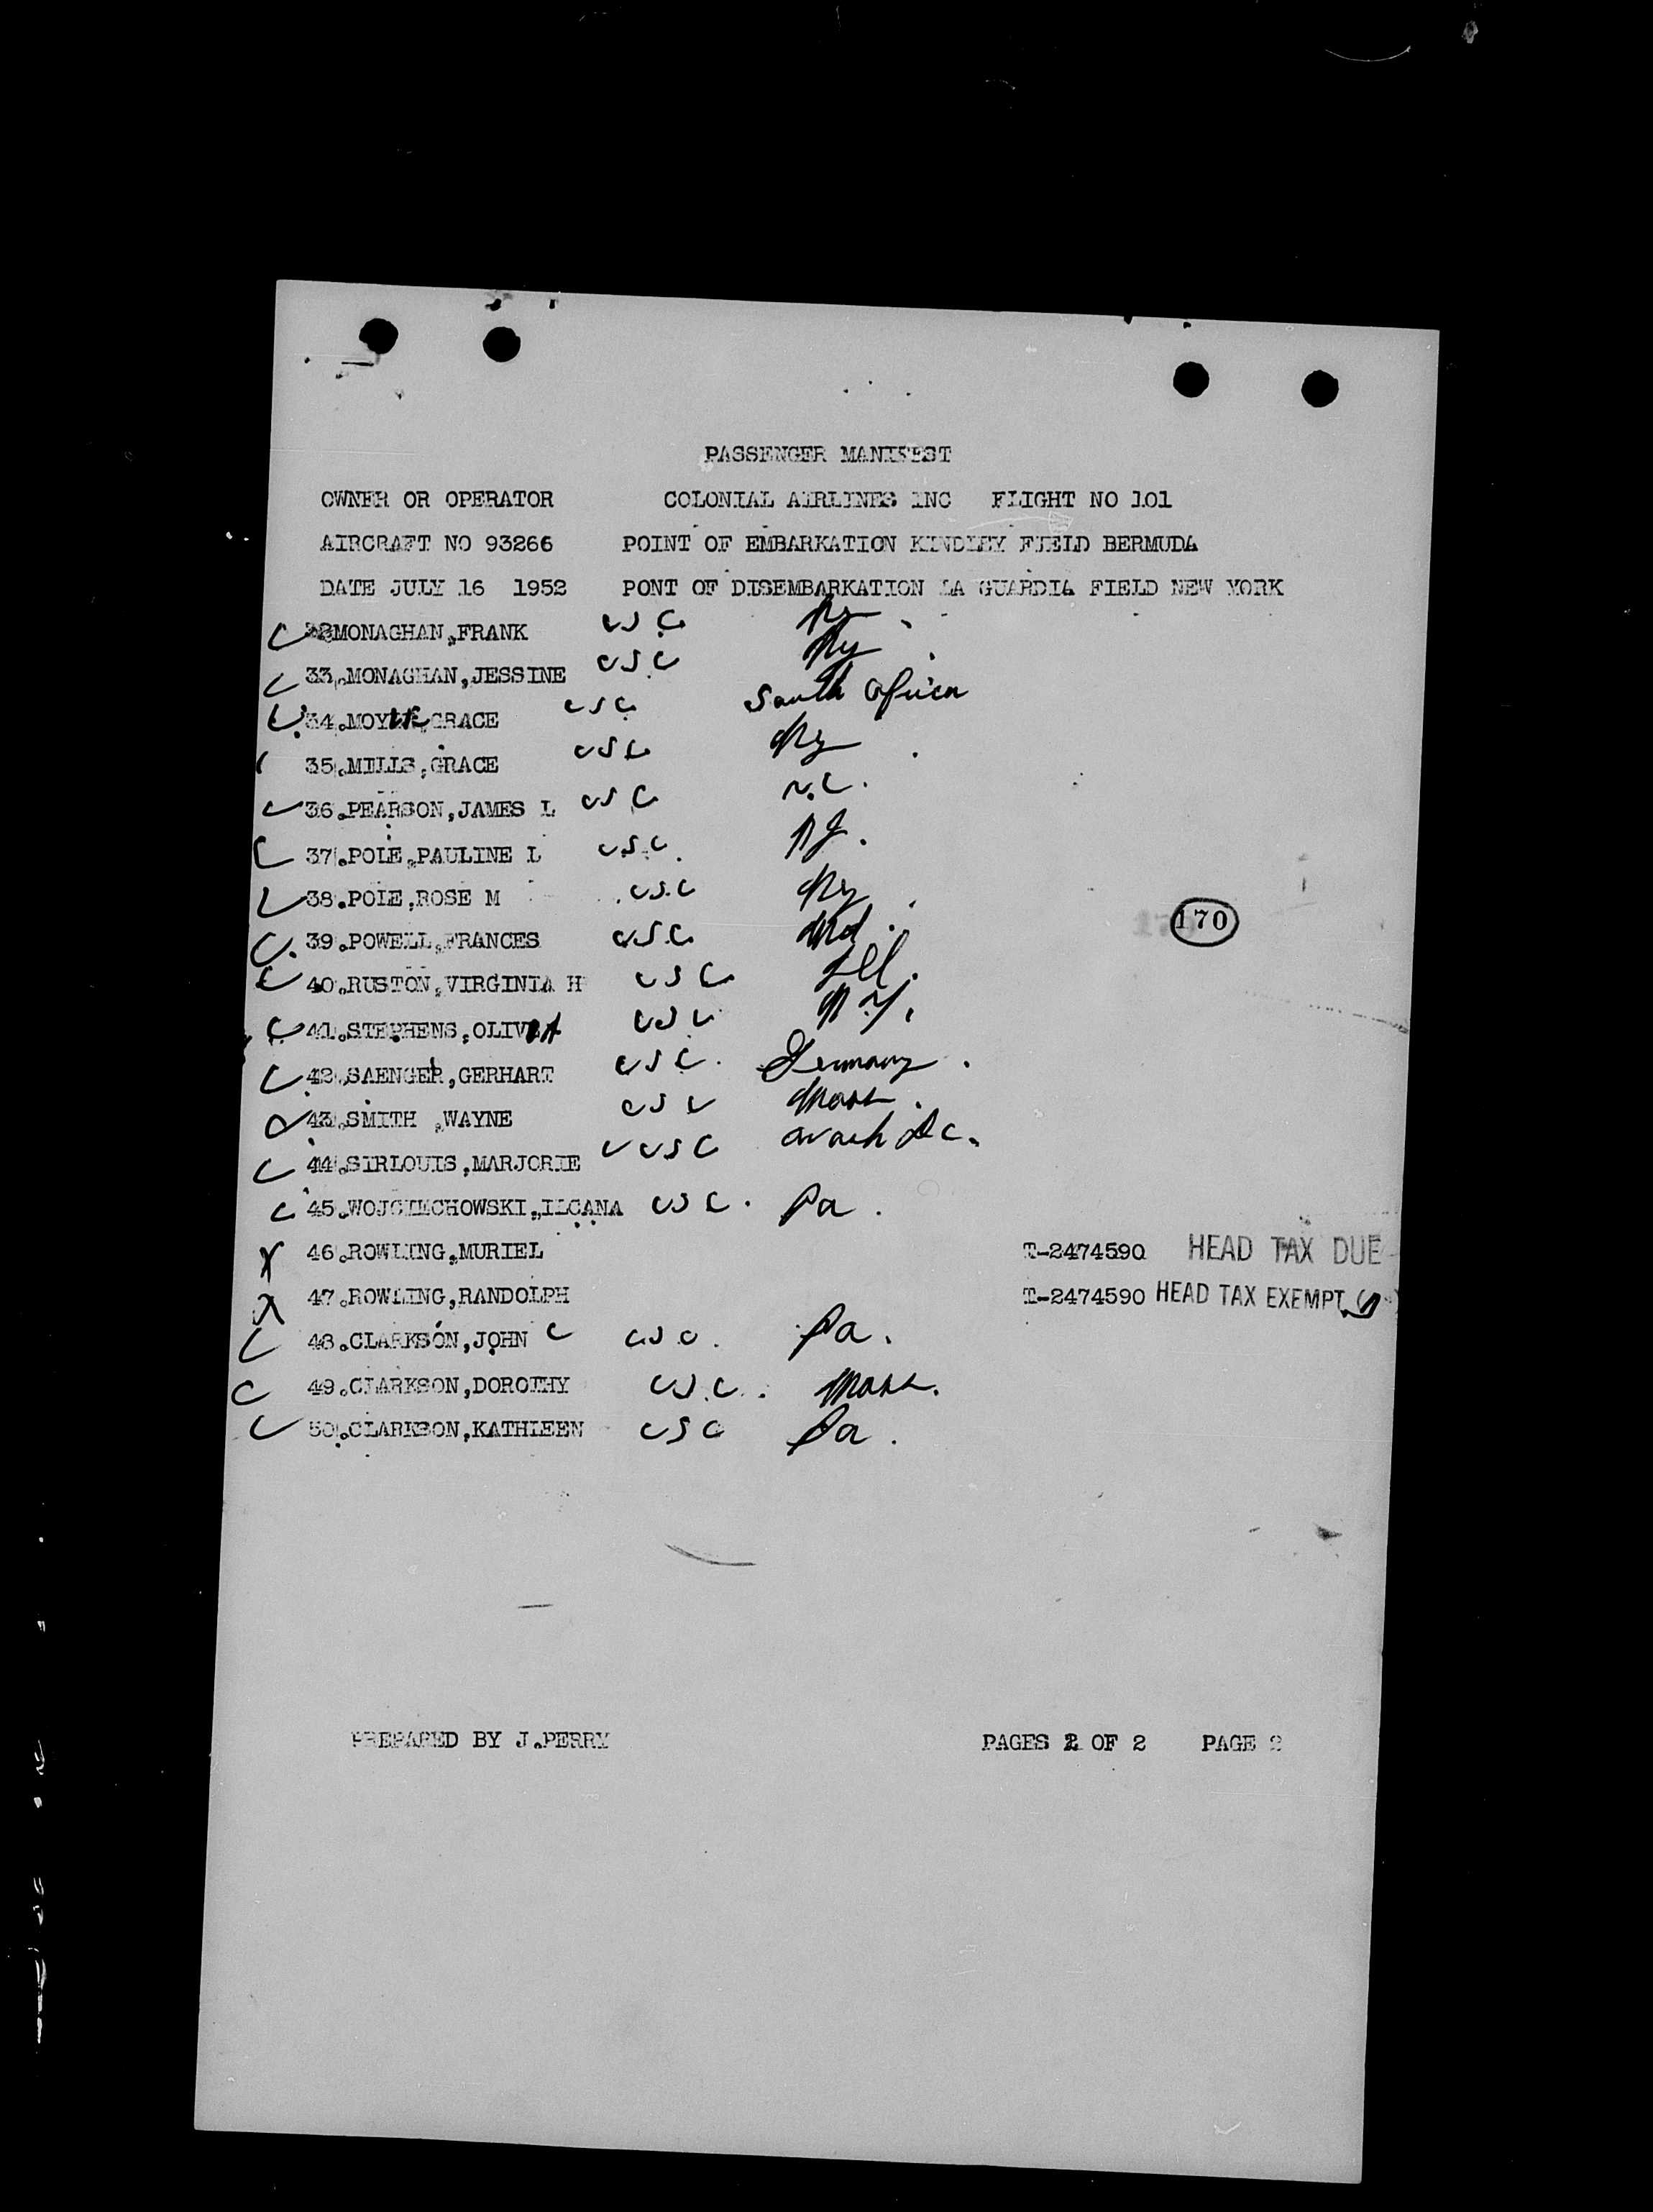 PASSENGER MANIFEST
OWNER OR OPERATOR COLONIAL AIRLINES INC FLIGHT NO 101
AIRCRAFT NO 93266 POINT OF EMBARKATION KINDLEY FIELD BERMUDA
DATE JULY 16 1952 PONT OF DISEMBARKATION LA GUARDIA FIELD NEW YORK
MONAGHAN,FRANK USC Ny
33.MONAGHAN,JESSINE USC Ny
34. GRACE USC South Africa
35.MILLS,GRACE USC Ny
36.PEARSON,JAMES L USC N.C.
37.POLE,PAULINE L USC NJ.
38.POLE,ROSE M USC Ny
170
39.POWELL,FRANCES USC Md.
40.RUSTON,VIRGINIA H USC Ill.
41.STEPHENS,OLIVIA USC N.Y.
42.SAENGER,GERHART USC. Germany.
43.SMITH ,WAYNE USC Mass.
44.SIRLOUIS,MARJORIE USC Wash Dc.
45.WOJCIECHOWSKI,ILCANA USC. Pa.
46.ROWLING,MURIEL T-2474590 HEAD TAX DUE
47.ROWLING,RANDOLPH T-2474590 HEAD TAX EXEMPT
48.CLARKSON,JOHN C USC. Pa.
49.CLARKSON,DOROTHY USC. Mass.
50.CLARKSON,KATHLEEN USC Pa.
PREPARED BY J.PERRY PAGES 2 OF 2 PAGE 2